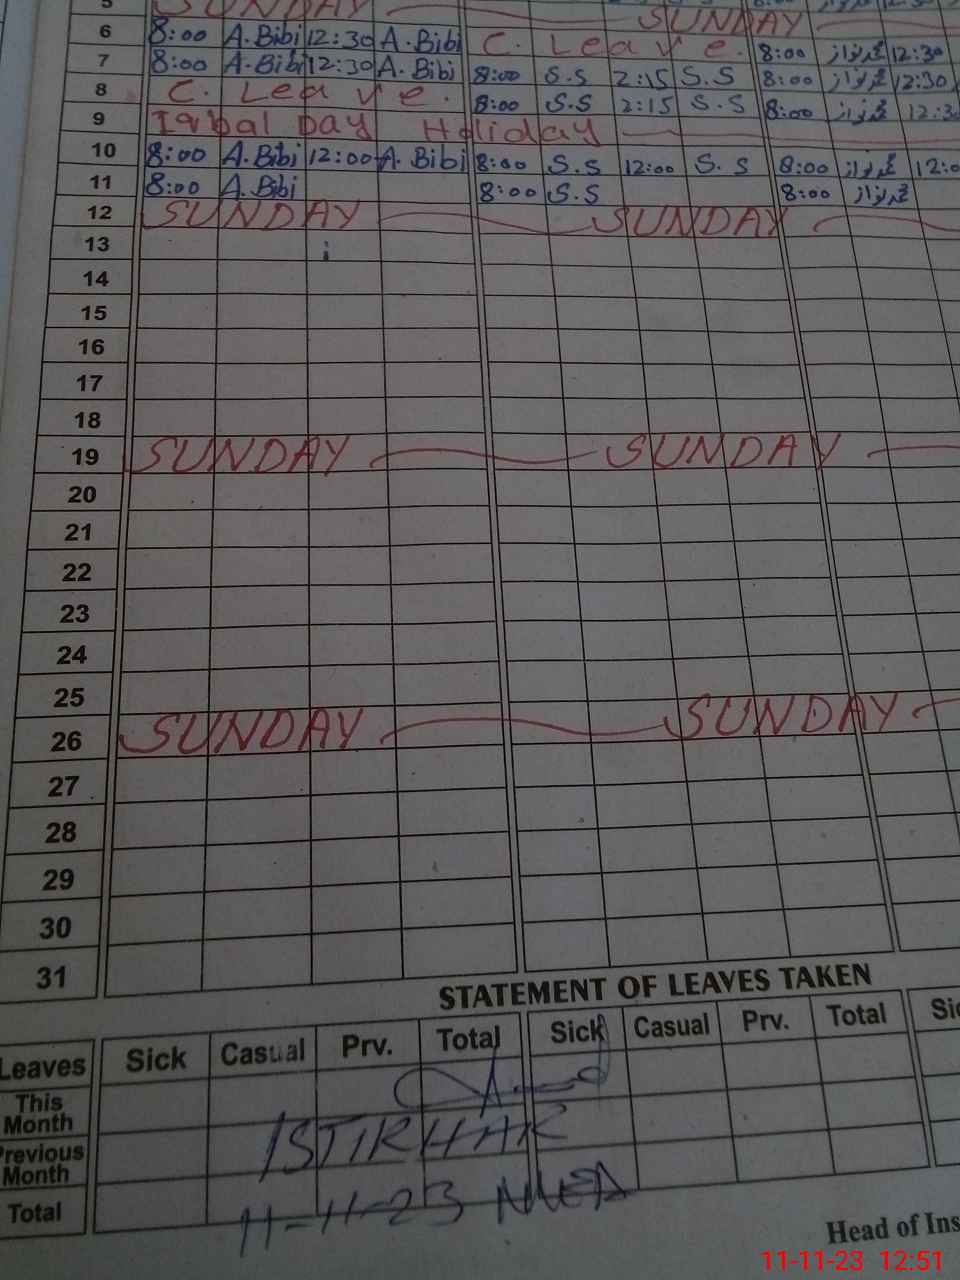 5 SUNDAY
SUNDAY 8:00
6 8:00 A.Bibi 12:30 A.Bibi C. Leave. 8:00 12:30
7 8:00 A.Bibi 12:30 A. Bibi 8:00 S.S 2:15 S.S 8:00 12:30
8 C. Leave. 8:00 S.S 2:15 S.S 8:00
9 Iqbal Day Holiday
10 8:00 A.Bibi 12:00 A. Bibi 8:00 S.S 12:00 S.S 8:00
11 8:00 A.Bibi 8:00 S.S 8:00
12 SUNDAY SUNDAY
13
14
15
16
17
18
19 SUNDAY SUNDAY
20
21
22
23
24
25
26 SUNDAY SUNDAY
27
28
29
30
31
STATEMENT OF LEAVES TAKEN
Leaves Sick Casual Prv. Total Sick Casual Prv. Total
This Month
Previous Month
Total
ISTIKHAR
11-11-23
Head of
11-11-23 12:51